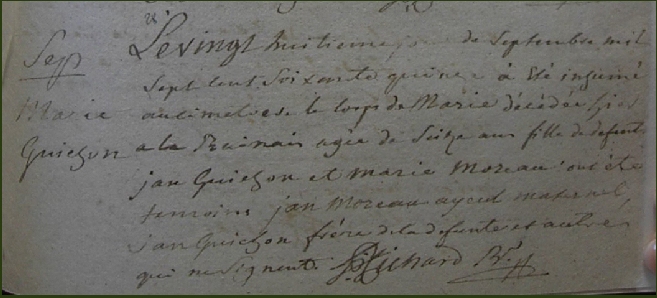 Sep
Marie
Guichon
Le vingt huitieme jour de Septembre mil
Sept Cent Soixante quinze à été inhumé
au cimetiere le Corps de Marie décédée hier
a la agée de Seize ans fille de defunt
jan Guichon et marie Moreau ont été
temoins jan Moreau ayeul maternel,
jan Guichon frére de la defunte et autres
qui ne signent. Richard